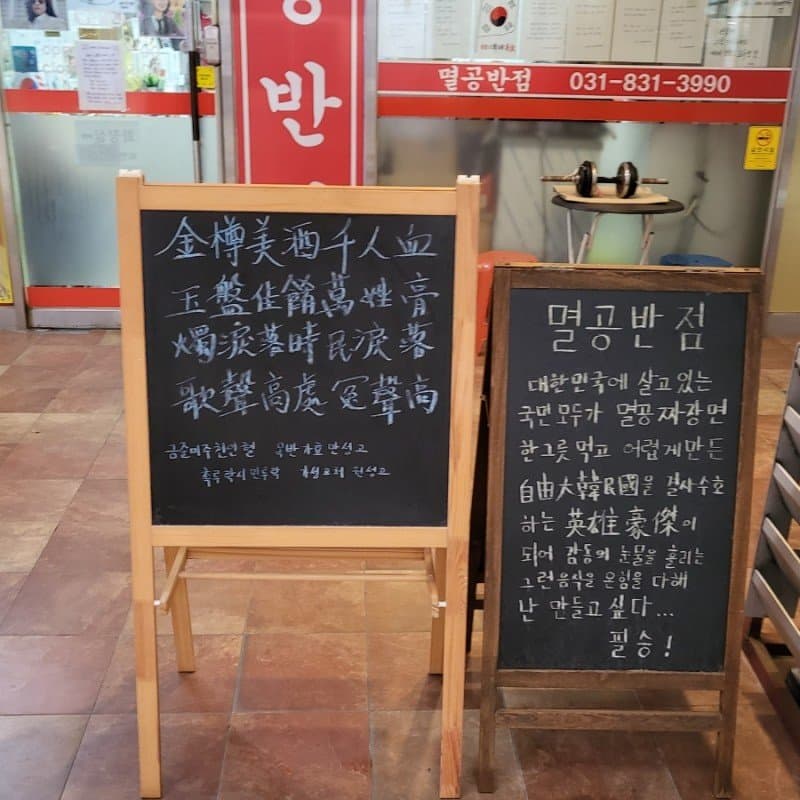 반
멸공반점 031-831-3990
金樽美酒千人血
玉盤佳餚萬姓膏
燭淚落時民淚落
歌聲高處冤聲高
금준미주천인혈 옥반가효만성고
촉루락시민루락 가성고처원성고
멸공반점
대한민국에 살고있는
국민모두가 멸공짜장면
한그릇먹고 어렵게만든
自由大韓民國을 결사수호
하는 英雄豪傑이
되어 감동의 눈물을 흘리는
그런음식을 온힘을 다해
난 만들고싶다...
필승!